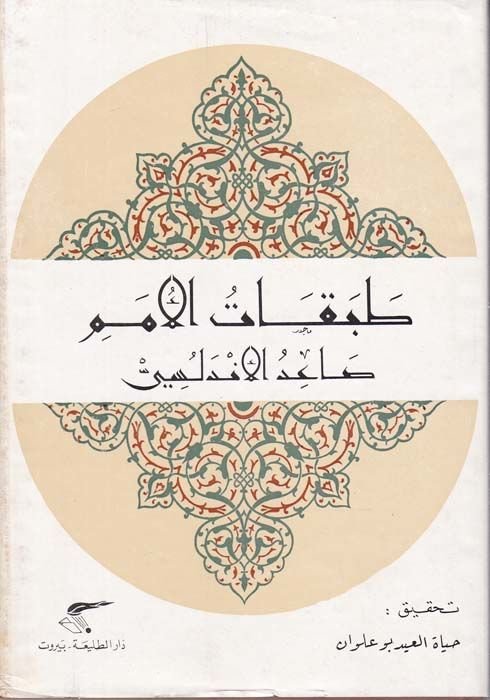 طَبَقَاتُ الأُمَمِ
صَاعِدُ الأَنْدَلُسِيّ
تحقيق :
حياة العيد بو علوان
دَار الطليعَة - بَيروت